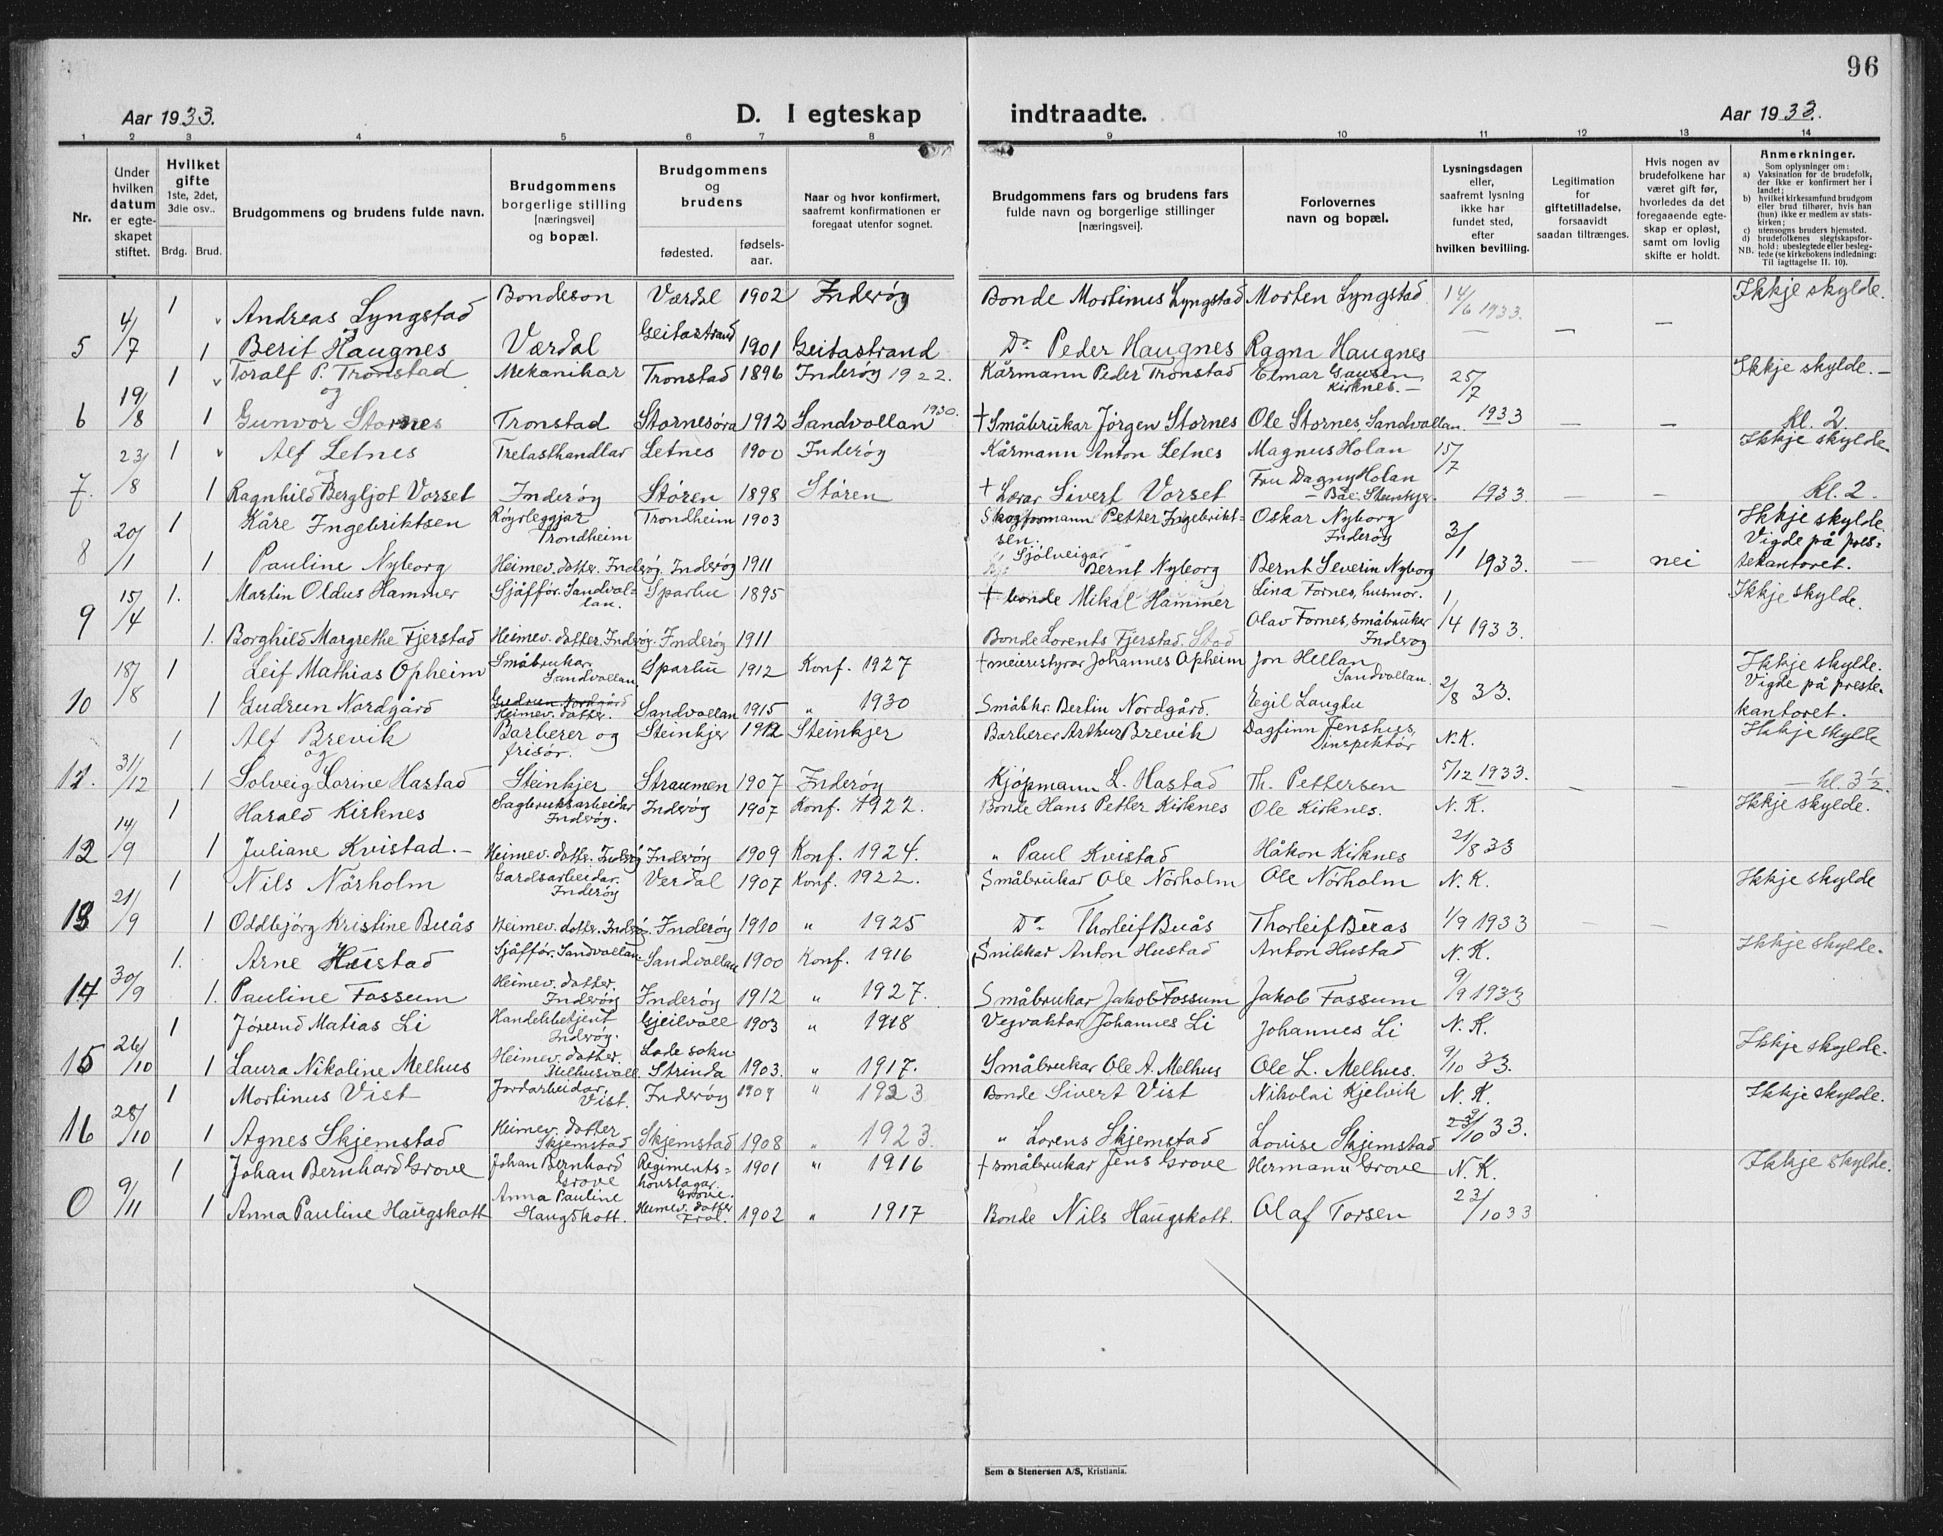 96
Aar 1933. D. I egteskap indtraadte. Aar 1933.
1 2 3 4 5 6 7 8 9 10 11 12 13 14
Nr.
Under hvilken datum er egteskapet stiftet.
Hvilket gifte 1ste, 2det, 3die osv..
Brdg. Brud.
Brudgommens og brudens fulde navn.
Brudgommens borgerlige stilling [næringsvei] og bopæl.
Brudgommens og brudens
fødested. fødselsaar.
Naar og hvor konfirmert, saafremt konfirmationen er foregaat utenfor sognet.
Brudgommens fars og brudens fars fulde navn og borgerlige stillinger [næringsvei].
Forlovernes navn og bopæl.
Lysningsdagen eller, saafremt lysning ikke har fundet sted, efter hvilken bevilling.
Legitimation for giftetilladelse, forsaavidt saadan tiltrænges.
Hvis nogen av brudefolkene har været gift før, hvorledes da det foregaaende egteskap er opløst, samt om lovlig skifte er holdt.
Anmerkninger.
Som oplysninger om:
a) Vaksination for de brudefolk, der ikke er konfirmert her i landet;
b) hvilket kirkesamfund brudgom eller brud tilhører, hvis han (hun) ikke er medlem av statskirken;
c) utensogns bruders hjemsted.
d) brudefolkenes slegtskapsforhold: ubeslegtede eller beslegtede (se kirkebokens indledning:
NB. Til iagttagelse II. 10).
1 Andreas Lyngstad Bondeson Værdal 1902 Inderøy Bonde Mortinus Lyngstad Morten Lyngstad 14/6 1933. Ikkje skylde.
og
5 4/7 1 Berit Haugnes Værdal Geitastrand 1901 Geitastrand Do Peder Haugnes Ragna Haugnes — —
1 Toralf P. Tronstad Mekanikar Tronstad 1896 Inderøy 1922. Kårmann Peder Tronstad Elmar Gausen, Kirknes. — 25/7 Ikkje skylde. —
og
6 19/8 1 Gunvor Stornes Tronstad Stornesøra 1912 Sandvollan 1930. † Småbrukar Jørgen Stornes Ole Stornes, Sandvollan. 1933 — — kl. 2.
1 Alf Letnes Trelasthandlar Letnes 1900 Inderøy Kårmann Anton Letnes Magnus Holan 15/7 Ikkje skylde
og
7. 23/8 1 Ragnhild Bergljot Vorset Inderøy Støren 1898 Støren † Lærar Sivert Vorset Fru Dagny Holan — Båe Steinkjer. 1933 — — kl. 2.
1 Kåre Ingebriktsen Røyrleggjar Trondheim Trondheim 1903 Skogformann Petter Ingebriktsen. Oskar Nyborg Inderøy 3/1 Ikkje skylde.
8 20/1 1 Pauline Nyborg Heimev. dotter. Inderøy. Inderøy 1911 Sjølveigar Bernt Nyborg Bernt Severin Nyborg 1933. — nei Vigde på prestekantoret.
1. Martin Oldus Hammer Sjåffør. Sandvollan. Sparbu 1895 † bonde Mikal Hammer Lina Fornes, husmor. 1/4 1933. Ikkje skylde.
9 15/4 1. Borghild Margrethe Fjerstad Heimev. dotter. Inderøy. Inderøy 1911 Bonde Lorents Fjerstad. Stod Olav Fornes, småbruker Inderøy
1 Leif Mathias Opheim Småbrukar Sandvollan Sparbu 1912 Konf. 1927 † meieristyrar Johannes Opheim Jon Hellan Sandvollan. 2/8 33. Ikkje skylde.
10 18/8 1 Gudrun Nordgård Gudrun Nordgård Heimev. dotter. Sandvollan 1915 „ 1930 Småbr. Berlin Nordgård. Egil Langlu Vigde på prestekantoret.
1 Alf Brevik Barberer og frisør. Steinkjer 1912 Steinkjer Barberer Arthur Brevik Dagfinn Jenshus, Dinspektør N.K. Ikkje skylde
og
11. 31/12 1 Solveig Lorine Hastad Steinkjer Straumen 1907 Inderøy Kjøpmann L. Hastad Th. Pettersen 5/12 1933. — kl. 3½.
1 Harald Kirknes Sagbruksarbeider Inderøy. Inderøy 1907 Konf. 1922. Bonde Hans Petter Kirknes Ole Kirknes. N. K. Ikkje skylde.
12 14/9 1 Juliane Kvistad. — Heimev. dotter. Inderøy Inderøy 1909 Konf. 1924. „ Paul Kvistad Håkon Kirknes 21/8 33
1 Nils Nørholm Gardsarbeidar. Inderøy Verdal 1907 Konf. 1922. Småbrukar Ole Nørholm Ole Nørholm N. K. Ikkje skylde
13 21/9 1 Oddbjørg Kristine Buås Heimev. dotter. Inderøy. Inderøy 1910 „ 1925 Do Thorleif Buås Thorleif Buås 1/9 1933 — —
1. Arne Hustad Sjåffør. Sandvollan. Sandvollan 1900 Konf. 1916 Snikkar Anton Hustad Anton Hustad N. K. Ikkje skylde.
14 30/9 1. Pauline Fossum Heimev. dotter. Inderøy Inderøy 1912 „ 1927. Småbrukar Jakob Fossum Jakob Fossum 9/9 1933
1 Jørund Matias Li Handelsbetjent Inderøy. Gjeilvoll 1903 „ 1918 Vegvaktar Johannes Li Johannes Li N. K. Ikkje skylde.
15 26/10 1 Laura Nikoline Melhus Heimev. dotter. Lade sokn Strinda 1903. „ 1917. Småbrukar Ole A. Melhus Ole L. Melhus. 9/10 33.
1 Mortinus Vist Jordarbeidar. Vist. Inderøy 1909 „ 1923 Bonde Sivert Vist Nikolai Kjelvik N. K. Ikkje skylde.
16 28/10 1 Agnes Skjemstad Heimev. dotter Skjemstad Skjemstad 1908 „ 1923. „ Lorens Skjemstad Lovise Skjemstad /10 33.
1 Johan Bernhard Grove Johan Bernhard Grove Regimentshovslagar. Grove. 1901 „ 1916 † småbrukar Jens Grove Hermann Grove N. K. Ikkje skylde.
0 9/11 1 Anna Pauline Haugskott Anna Pauline Haugskott. Heimev. dotter Frol. 1902 „ 1917 Bonde Nils Haugskott. Olaf Torsen 23/10 33
Sem & Stenersen A/S, Kristiania.